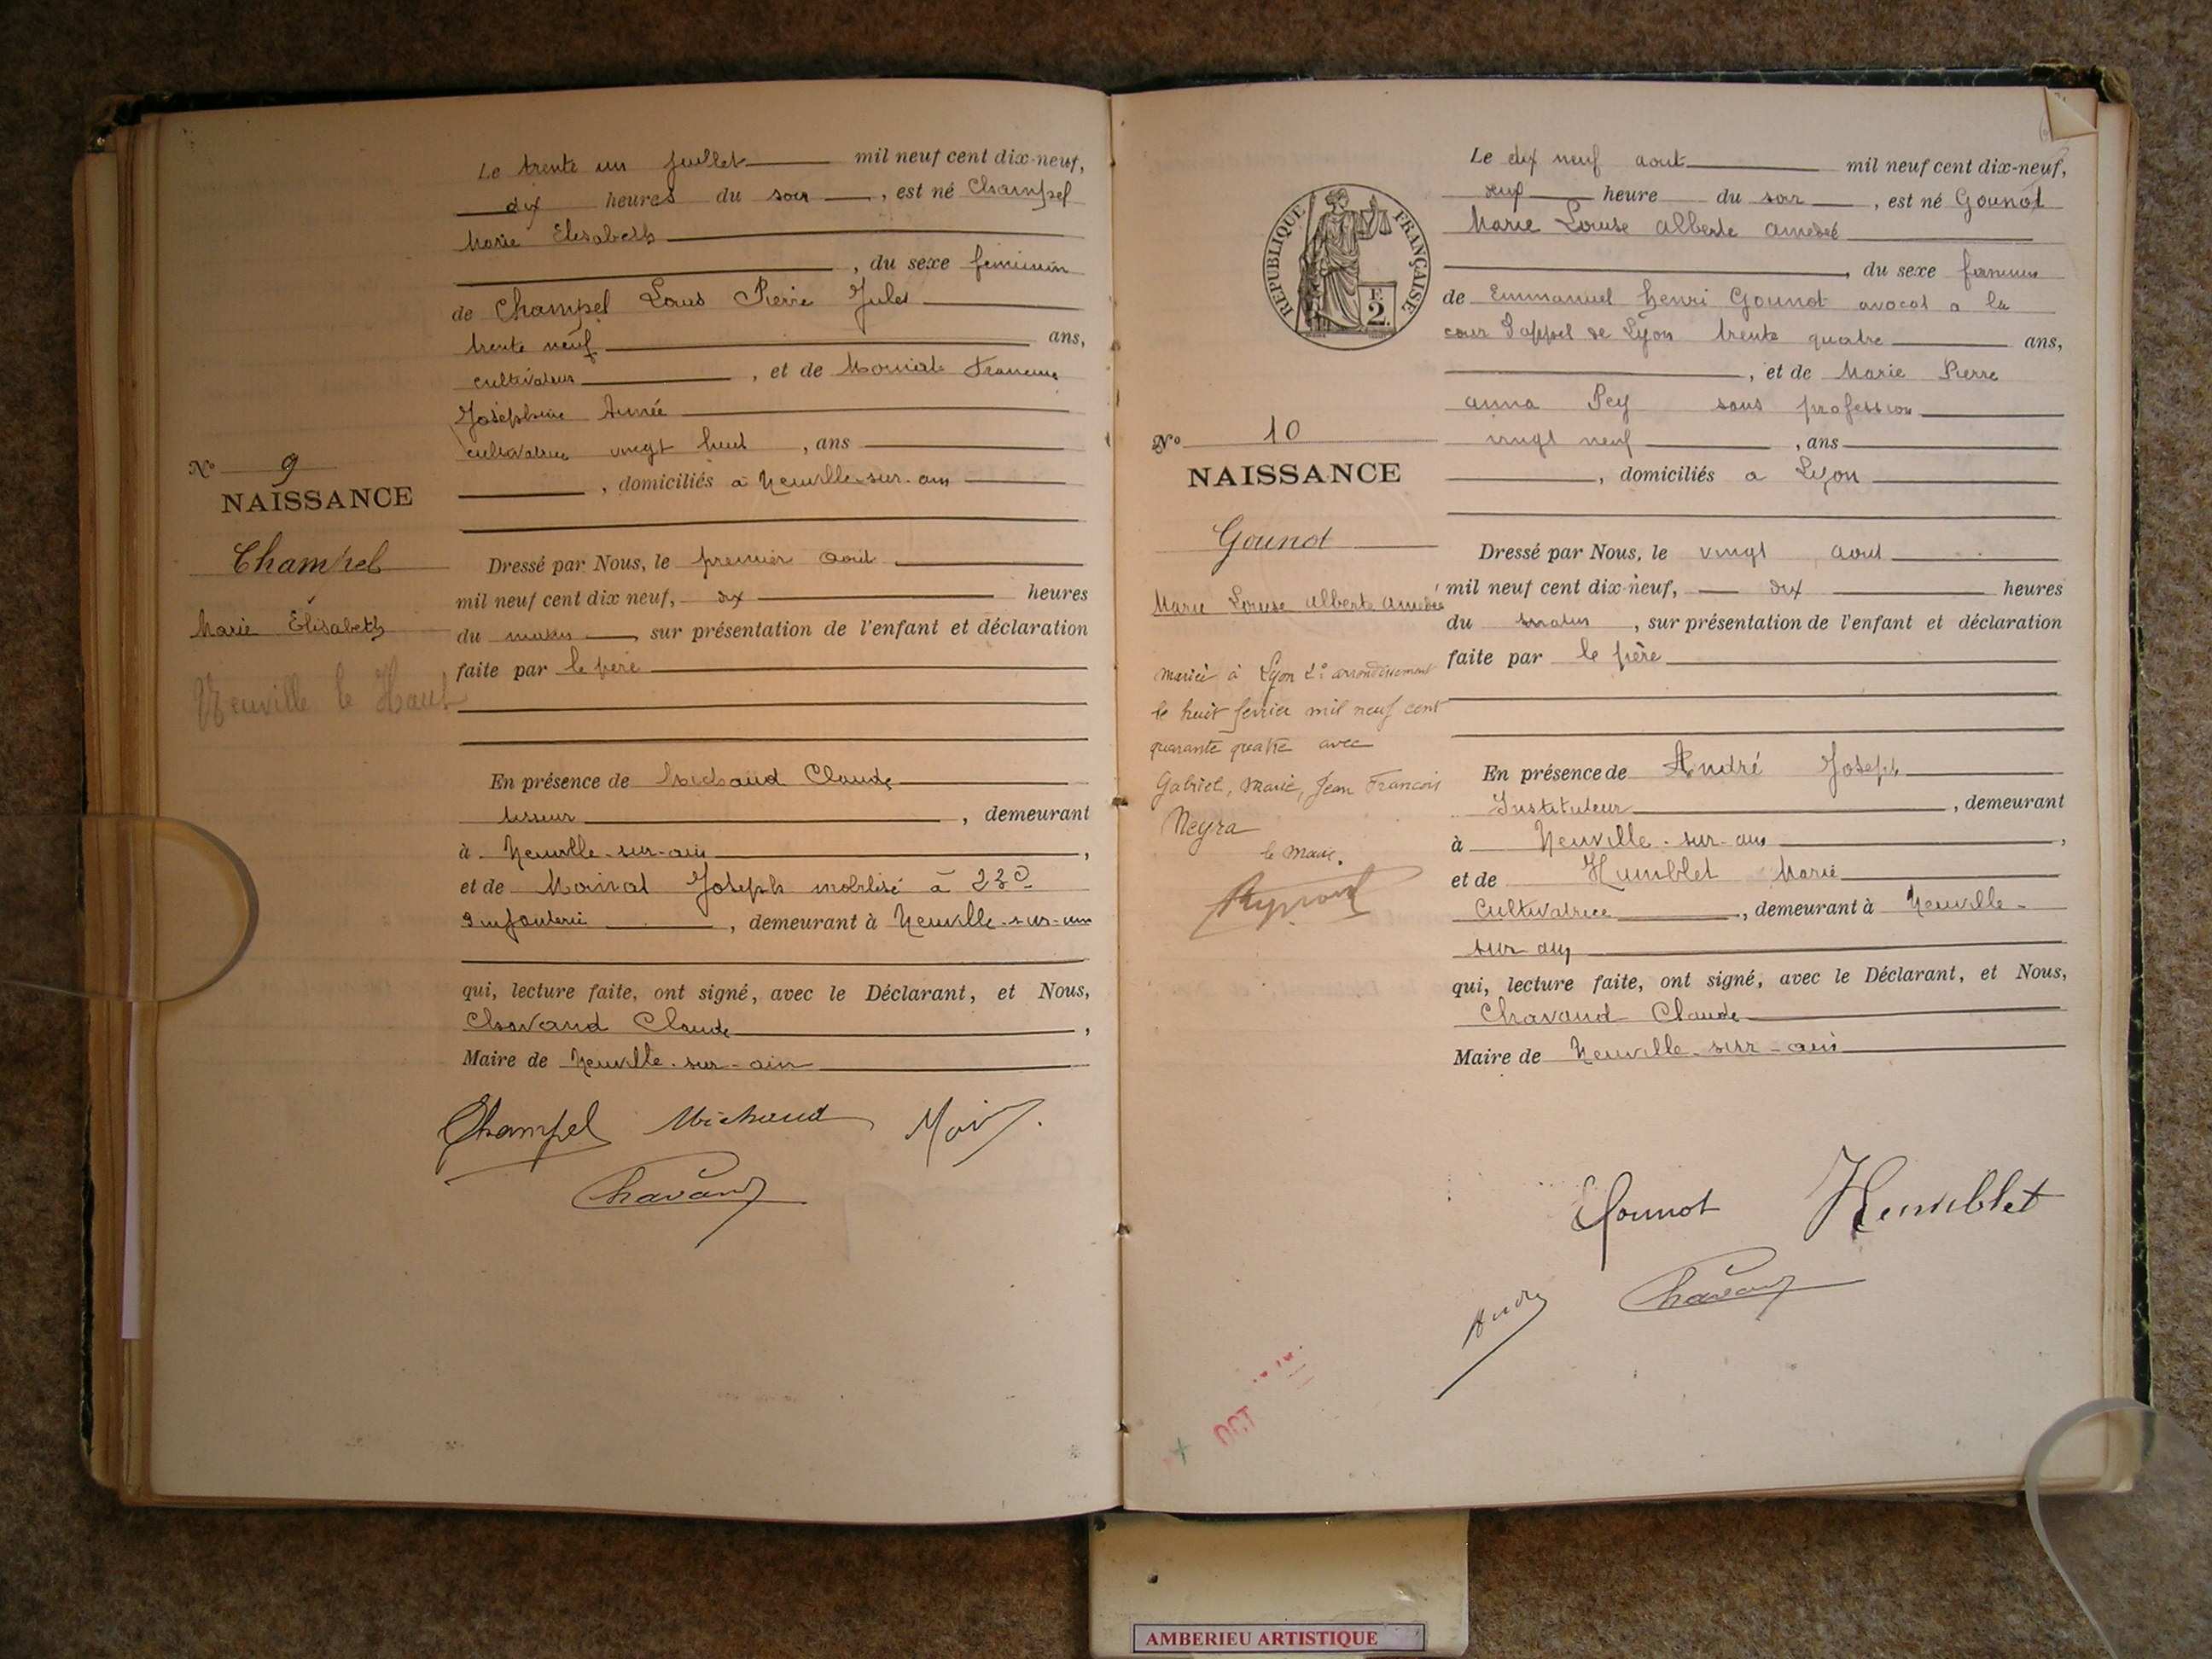 Le trente un juillet mil neuf cent dix-neuf,
dix heures du soir, est né Champel
Marie Elisabeth
, du sexe feminin
de Champel Louis Pierre Jules
trente neuf ans,
cultivateur, et de Francine
Joséphine Aimée
cultivatrice vingt huit, ans
, domiciliés à Neuville-sur-ain
N° 9
NAISSANCE
Champel
Marie Elisabeth
Neuville le Haut
Dressé par Nous, le premier Août
mil neuf cent dix neuf, dix heures
du matin, sur présentation de l'enfant et déclaration
faite par le père
En présence de Michaud Claude
tisseur, demeurant
à Neuville-sur-ain,
et de Joseph mobilisé à 23e
Infanterie, demeurant à Neuville-sur-ain
qui, lecture faite, ont signé, avec le Déclarant, et Nous,
Chavand Claude,
Maire de Neuville-sur-ain
Champel Michaud
Chavand
Le dix neuf aout mil neuf cent dix-neuf,
heure du soir, est né Gounot
Marie Louise Alberte Amedeé
, du sexe
de Emmanuel Henri Gounot avocat a la
cour d'appel de Lyon trente quatre ans,
, et de Marie Pierre
anna Pey sans profession
vingt neuf, ans
, domiciliés a Lyon
REPUBLIQUE FRANÇAISE
F.
2.
N° 10
NAISSANCE
Gounot
Marie Louise Alberte Amedee
mariée à Lyon 2e arrondissement
le huit fevrier mil neuf cent
quarante quatre avec
Gabriel, Marie, Jean Francois
Neyra
le Maire.
Dressé par Nous, le vingt aout
mil neuf cent dix-neuf, dix heures
du matin, sur présentation de l'enfant et déclaration
faite par le père
En présence de André Joseph
Instituteur, demeurant
à Neuville-sur-ain,
et de Humblet Marie
Cultivatrice, demeurant à Neuville-
sur ain
qui, lecture faite, ont signé, avec le Déclarant, et Nous,
Chavand Claude
Maire de Neuville-sur-ain
Gounot Humblet
André Chavand
OCT
AMBERIEU ARTISTIQUE